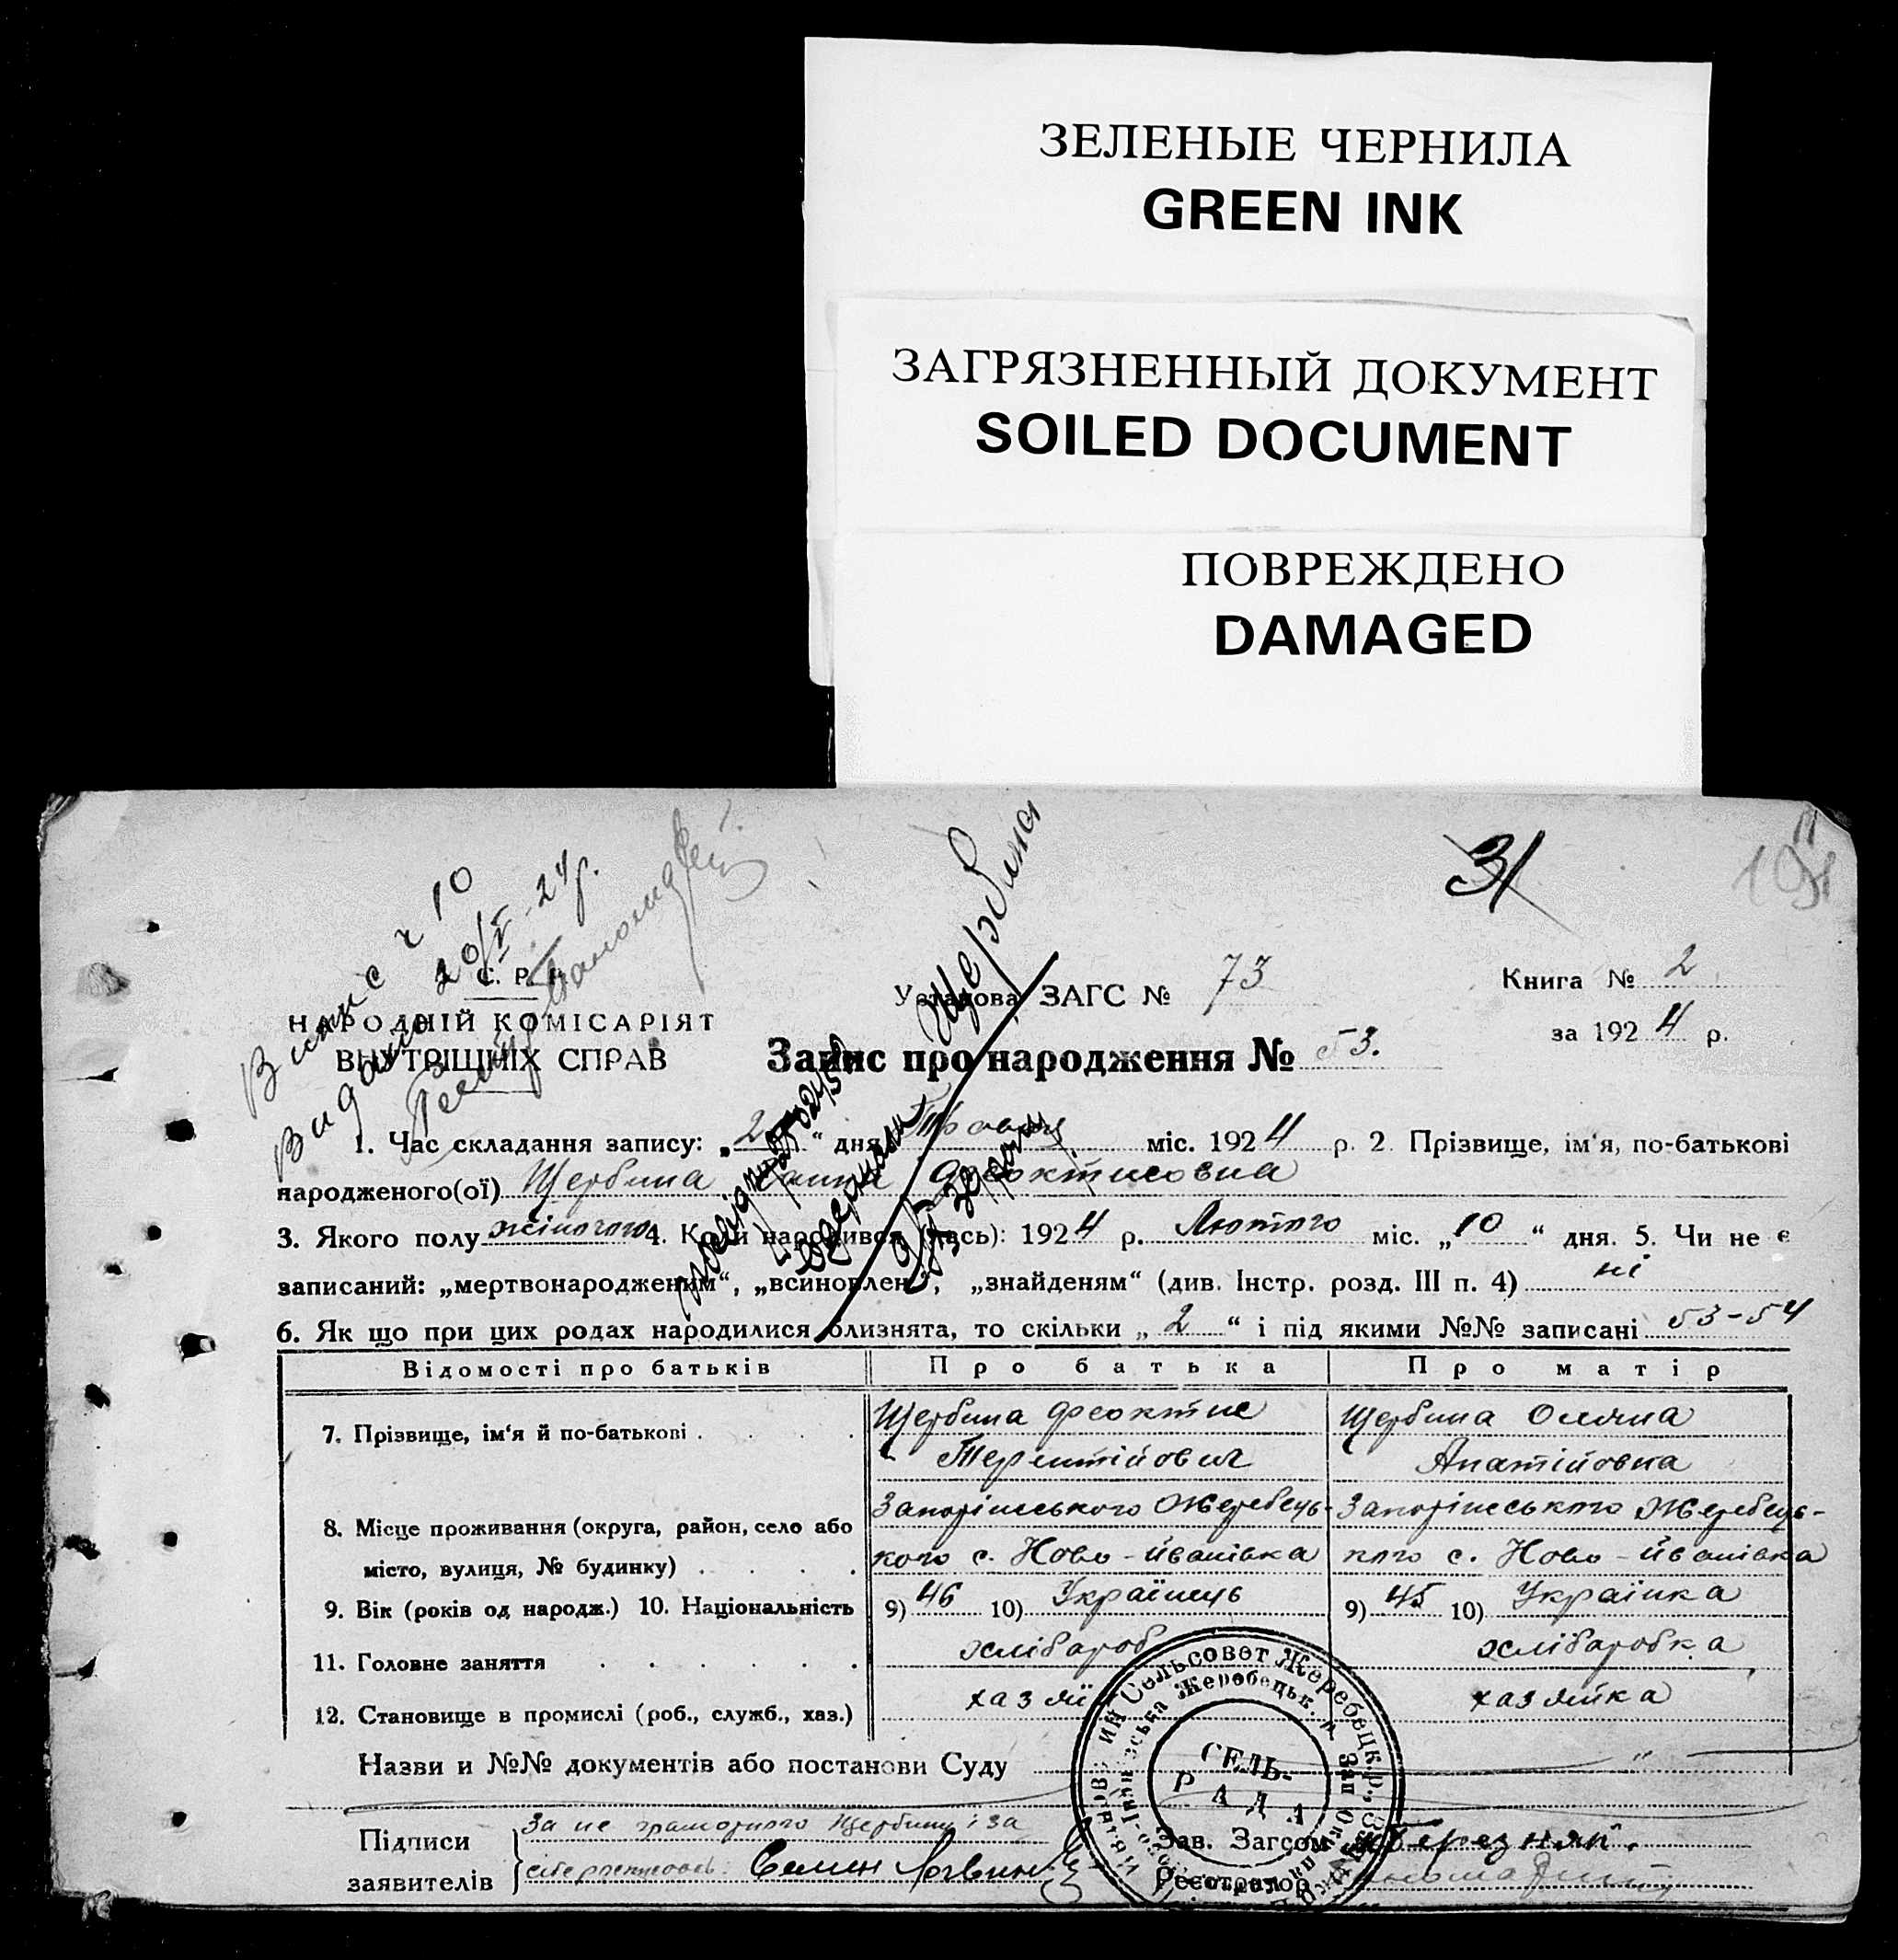 ЗЕЛЕНЫЕ ЧЕРНИЛА
GREEN INK
ЗАГРЯЗНЕННЫЙ ДОКУМЕНТ
SOILED DOCUMENT
ПОВРЕЖДЕНО
DAMAGED
31
Випис ч 10
Видано 20/V-24 р.
Щербина
НАРОДНІЙ КОМІСАРІЯТ
ВНУТРІШНІХ СПРАВ
Установа ЗАГС № 73
Книга № 2
за 1924 р.
Запис про народження № 53.
1. Час складання запису: „2“ дня Травня міс. 1924 р. 2. Прізвище, ім‘я, по-батькові
народженого(ої) Щербина Ганна Феоктисовна
3. Якого полу жіночого 4. Коли народився (лась): 1924 р. Лютого міс. „10“ дня. 5. Чи не є
записаний: „мертвонародженим“, „всиновлен.“, „знайденям“ (див. Інстр. розд. III п. 4) ні
6. Як що при цих родах народилися близнята, то скільки „2“ і під якими №№ записані 53-54
Відомості про батьків Про батька Про матір
7. Прізвище, ім‘я й по-батькові Щербина Феоктис Щербина Оляна
Терентійович Ипатійовна
8. Місце проживання (округа, район, село або Запоріжського Жеребець- Запоріжського Жеребець-
місто, вулиця, № будинку) кого с. Ново-Йванівка кого с. Ново-Йванівка
9. Вік (років од народж.) 10. Національність 9) 46 10) Українець 9) 45 10) Українка
11. Головне заняття хлібароб хлібаробка
12. Становище в промислі (роб., служб., хаз.) хазяїн хазяйка
Назви и №№ документів або постанови Суду „
СЕЛЬ-
РАДА
Підписи За не грамотного Щербину і за
заявителів Семен
Зав. Загсом Березняк.
Реєстратор